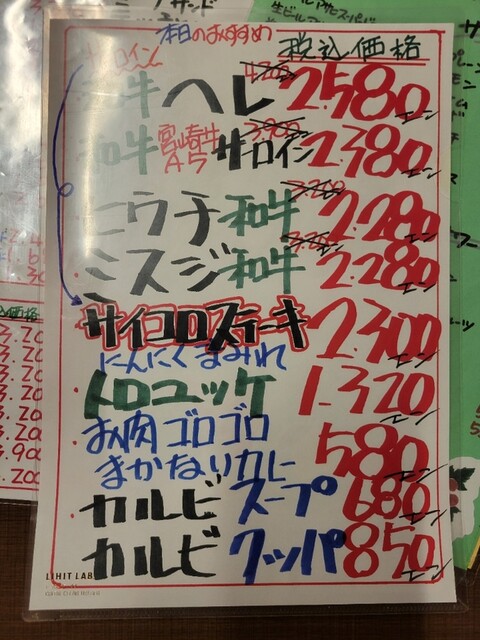 本日のおすすめ
税込価格
サーロイン
和牛ヘレ 4.200 2.580エン
和牛 宮崎牛 A5 サーロイン 3.900 2.380エン
ニウチ 和牛 3.200 2.280エン
ミスジ 和牛 2.280エン
サイコロステーキ 2.300エン
にんにくまみれ
トロユッケ 1.320エン
お肉ゴロゴロ
まかないカレー 580エン
カルビスープ 680エン
カルビクッパ 850エン
LIHIT LAB